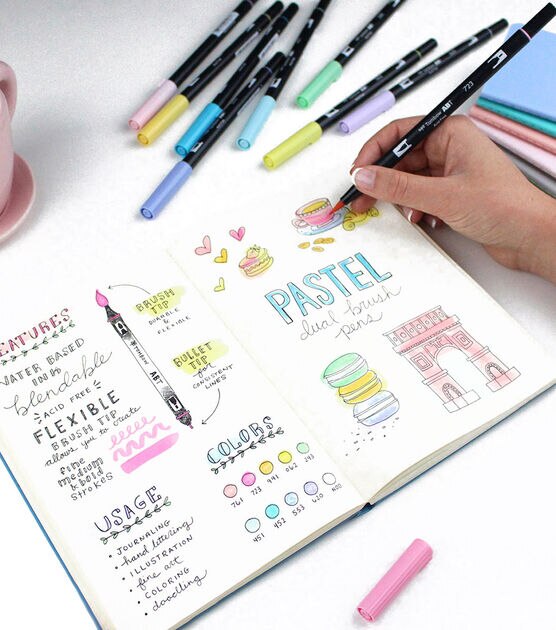 EATURES
WATER BASED
INK
blendable
ACID FREE
FLEXIBLE
BRUSH TIP
allows you to create
fine
medium
& bold
STROKES
USAGE
• JOURNALING
• hand lettering
• ILLUSTRATION
• fine art
• COLORING
• doodling
BRUSH
TIP
DURABLE
&
FLEXIBLE
Tombow ABT
BULLET
TIP
for
CONSISTENT
LINES
COLORS
761 723 991 062 243
451 452 553 620 N00
PASTEL
dual brush
pens
Tombow ABT
723